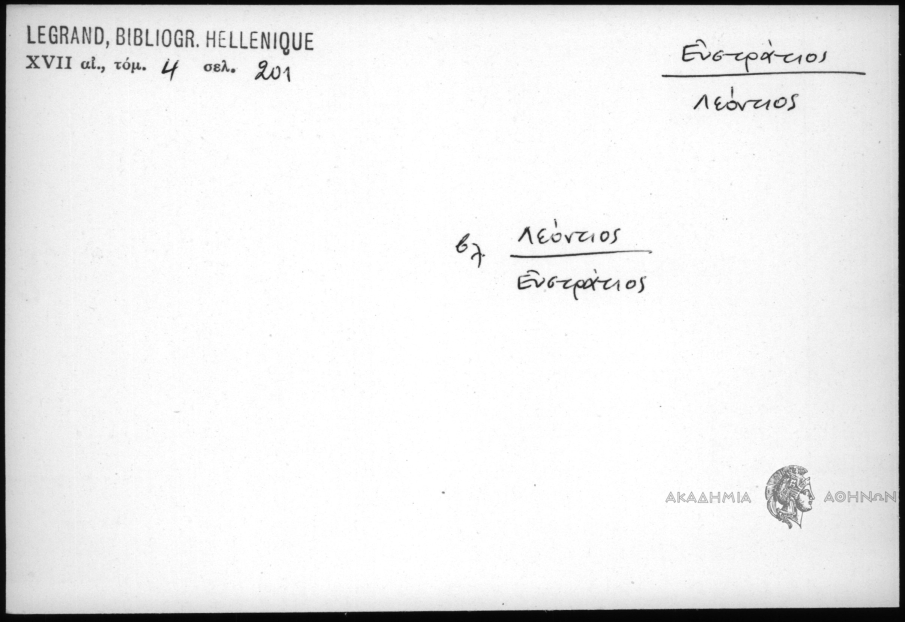 LEGRAND, BIBLIOGR. HELLENIQUE
XVII αἰ., τόμ. 4 σελ. 201
Εὐστράτιος
Λεόντιος
βλ. Λεόντιος
Εὐστράτιος
ΑΚΑΔΗΜΙΑ ΑΘΗΝΩΝ